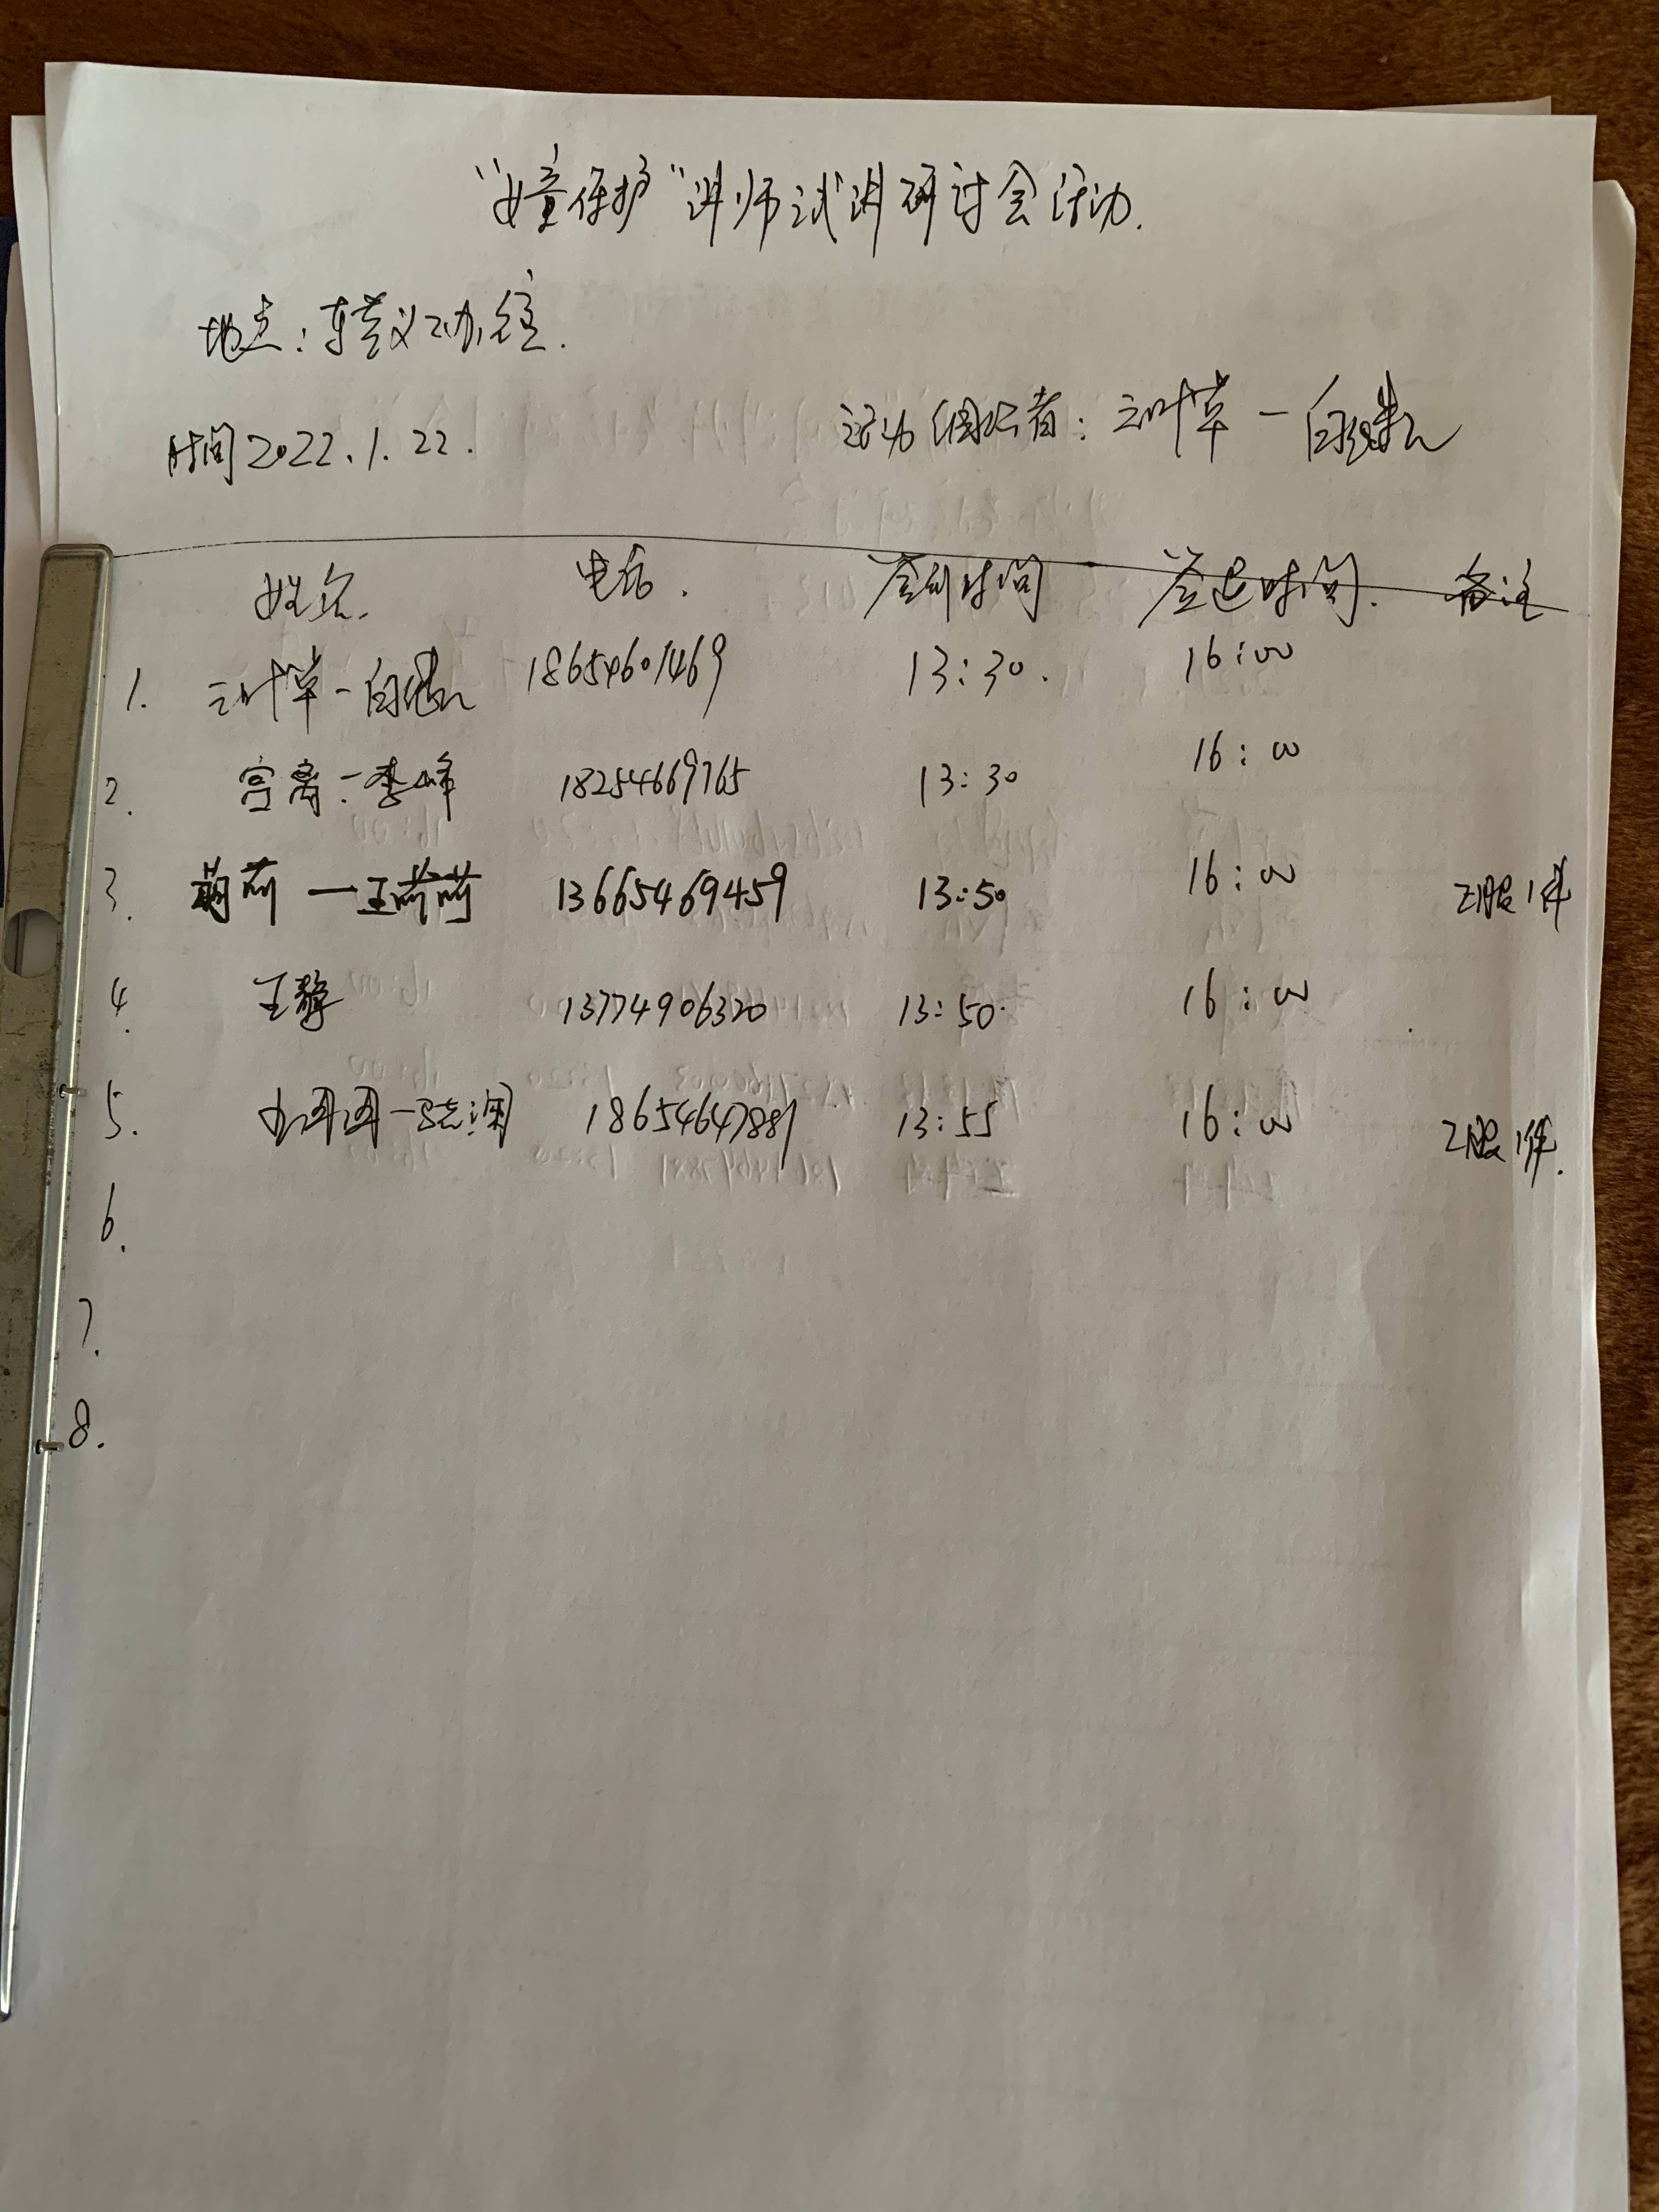 “女童保护”讲师试讲研讨会活动.
地点:东营义工办公室.
时间2022.1.22.
活动组织者:三叶草一白
姓名. 电话. 签到时间 签退时间. 备注
1. 三叶草-白 18654601469 13:30. 16:00
2. 宫商-李峰 18254669765 13:30 16:00
3. 萌萌 一王萌萌 13665469459 13:50 16:00 工服1件
4. 王静 13774906320 13:50. 16:00
5. 18654647881 13:55 16:00 工服1件.
6.
7.
8.